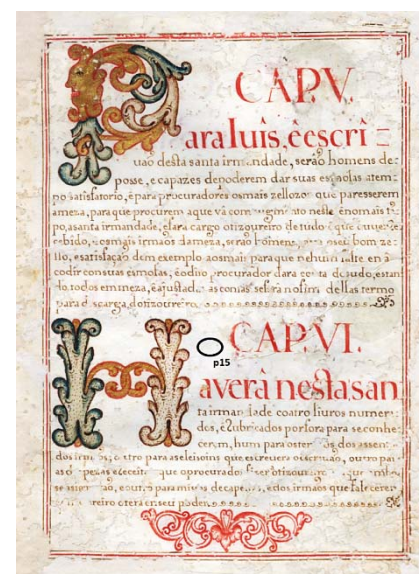 CAP.V.
Para luis, é escri=
uaõ desta santa irmandade, seraõ homens de
posse, e capazes depoderem dar suas esmolas atem=
po satisfatorio, épara procuradores osmais zellozos que paresserem
ameza, para que procurem aque vá com nelle énomais tẽ
po, asanta irmandade, cargo otizoureiro detudo éque
osmais irmaõs dameza, seraõ homens bom ze=
llo, esatisfaçaõ dem exemplo aosmais paraque nehum falte en a
codir consuas esmolas, éodito procurador dara conta detudo, estan
do todos emmeza, as contas sefará nofim dellas termo
para descarga, dotizoureiro
CAP.VI.
p15
Haverá nesta san
ta irmandade coatro liuros numera=
dos, éRubricados porfora para seconhe=
cerem, hum para dos assen
dos irmaõs, outro para aseleisoins que escreuera oescriuaõ, outro par
as despezas que oprocurador fizer otizoureiro
para missas decapella, edos irmaõs que falecerem
oterá enseu poder